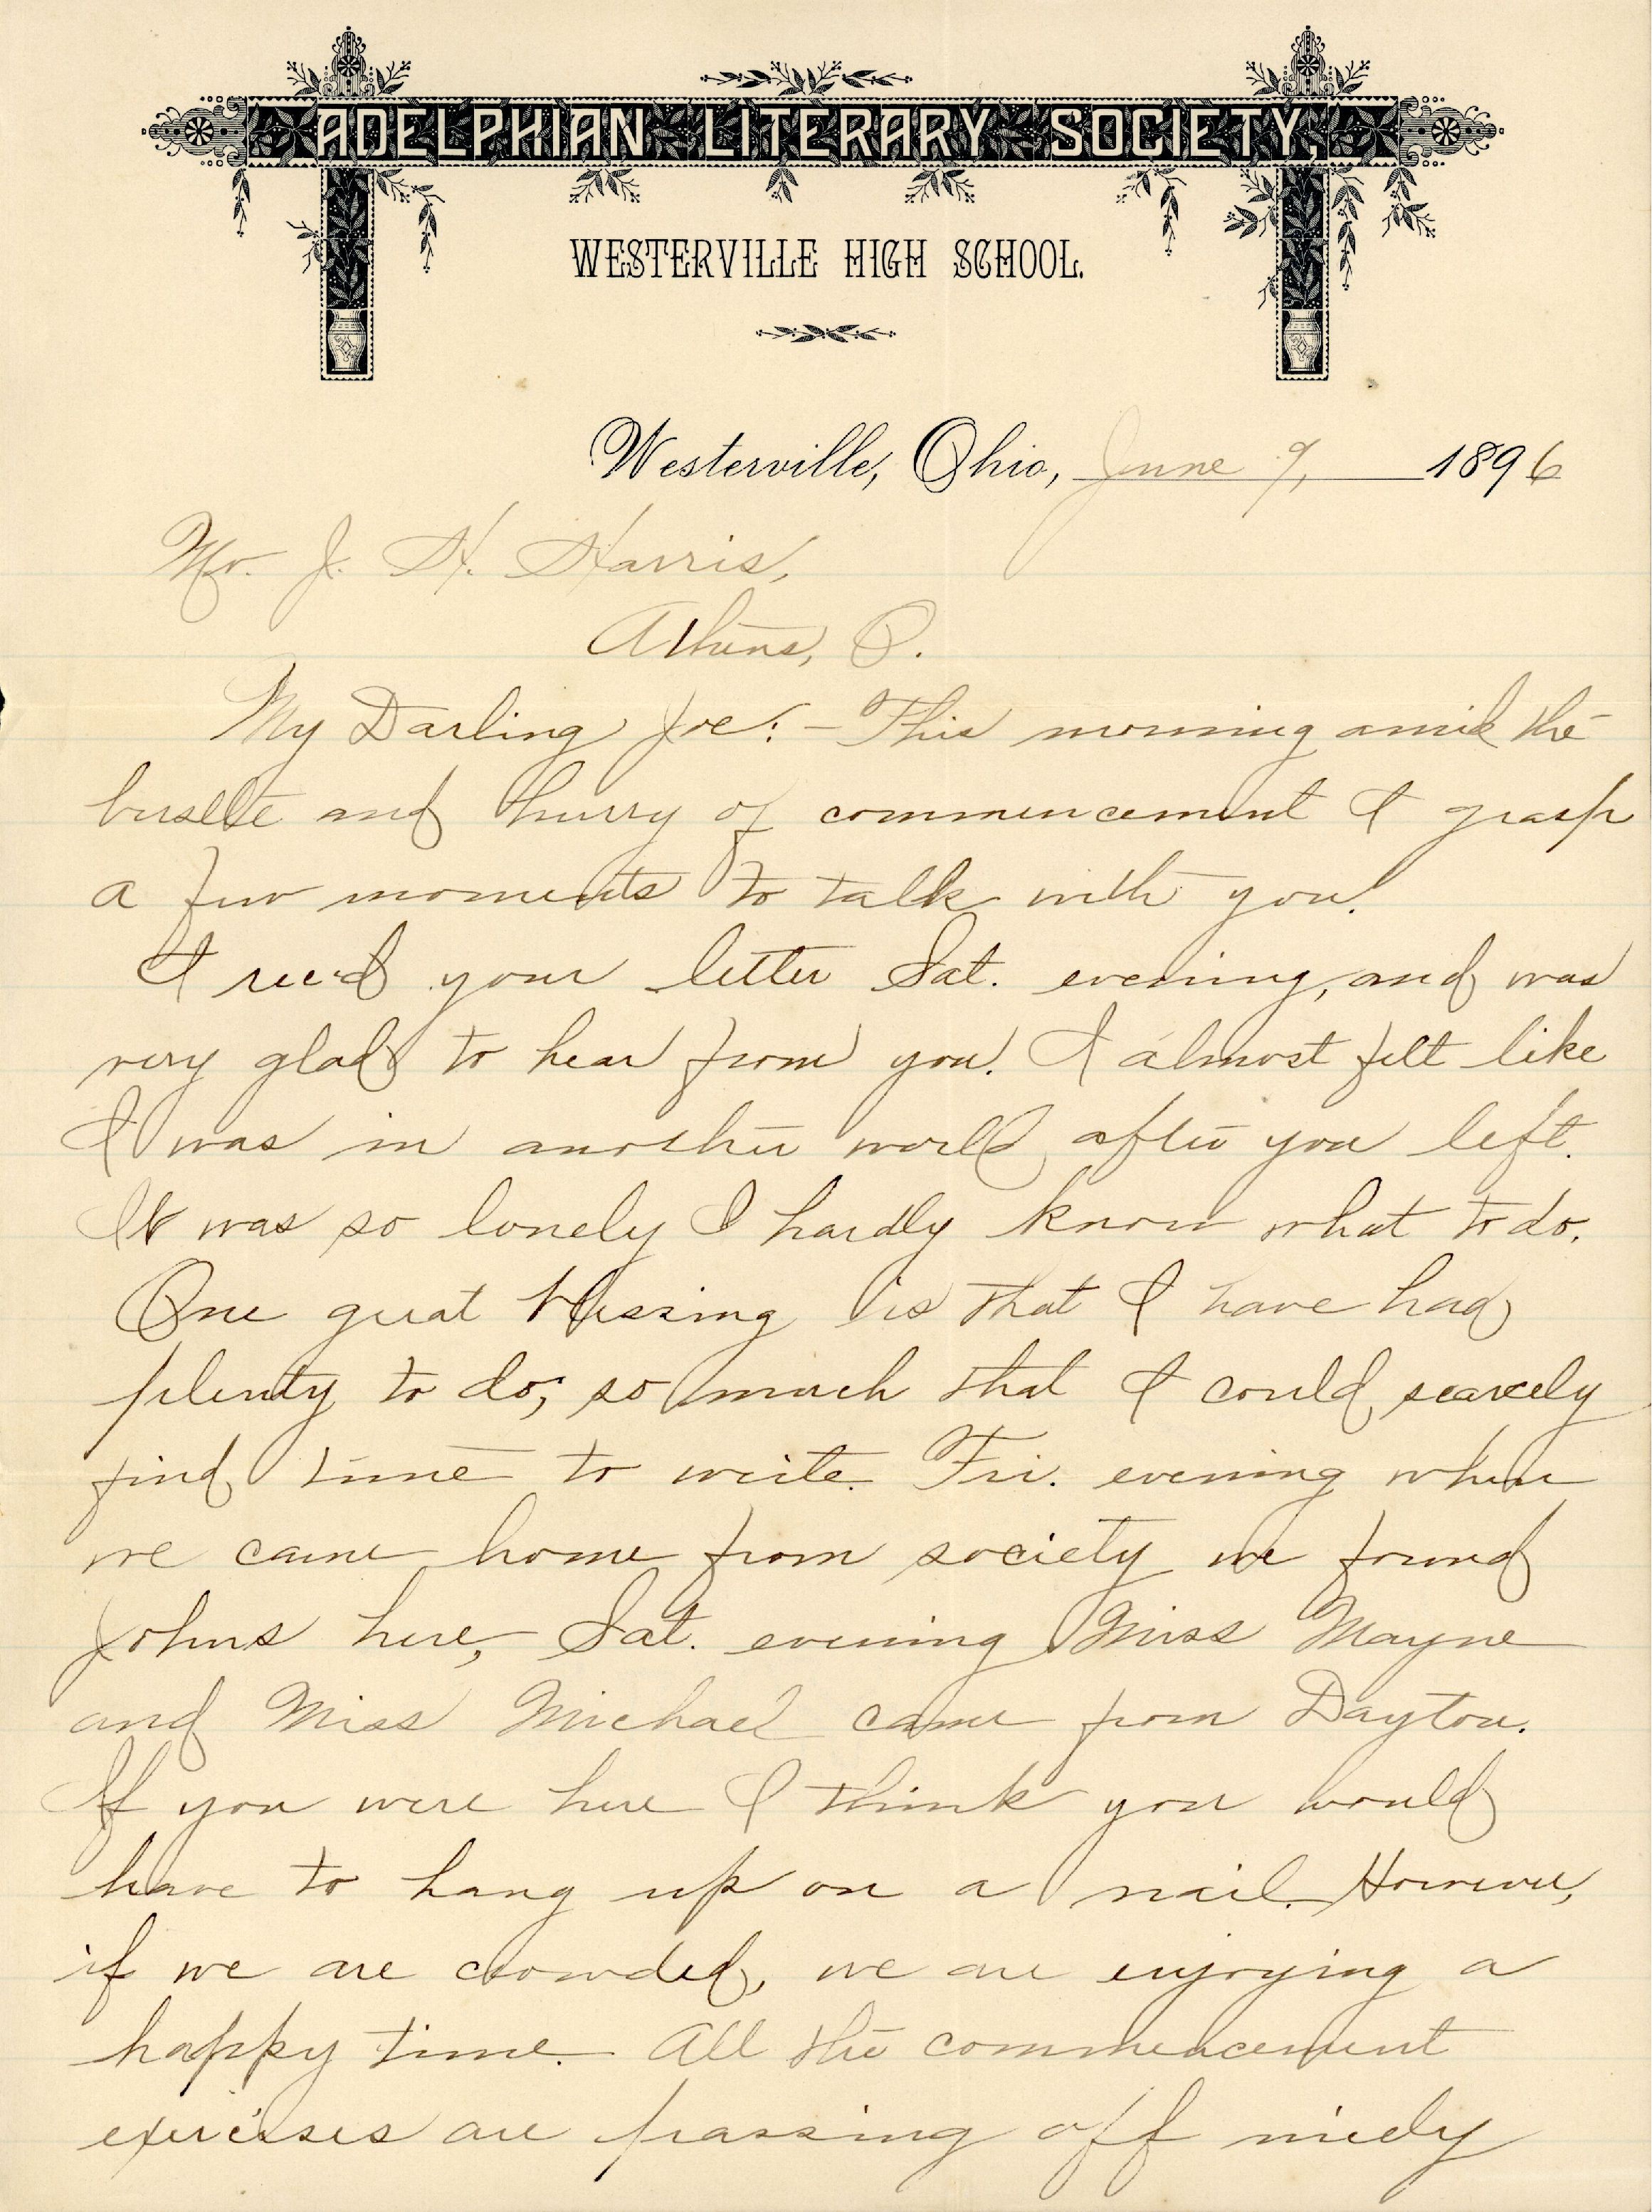 ADELPHIAN LITERARY SOCIETY,
WESTERVILLE HIGH SCHOOL.
Westerville, Ohio, June 9, 1896
Mr. J. H. Harris,
Athens, O.
My Darling Joe:- This morning amid the
bustle and hurry of commencement I grasp
a few moments to talk with you.
I rec'd your letter Sat. evening, and was
very glad to hear from you. I almost felt like
I was in another world after you left.
It was so lonely I hardly know what to do.
One great blessing is that I have had
plenty to do, so much that I could scarcely
find time to write. Fri. evening when
we came home from society we found
Johns here, Sat. evening Miss Mayne
and Miss Michael came from Dayton.
If you were here I think you would
have to hang up on a nail. However,
if we are crowded, we are enjoying a
happy time. All the commencement
exercises are passing off nicely